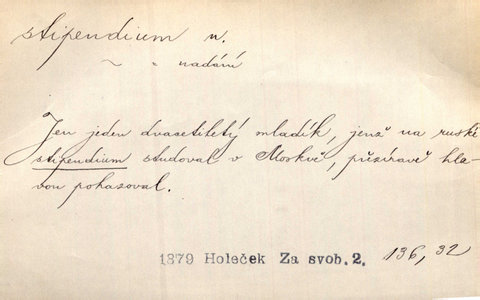 stipendium n.
~ " nadání
Jen jeden dvacetiletý mladík, jenž na ruské
stipendium studoval v Moskvě, přezíravě hla-
vou pohazoval.
1879 Holeček Za svob. 2. 136, 32